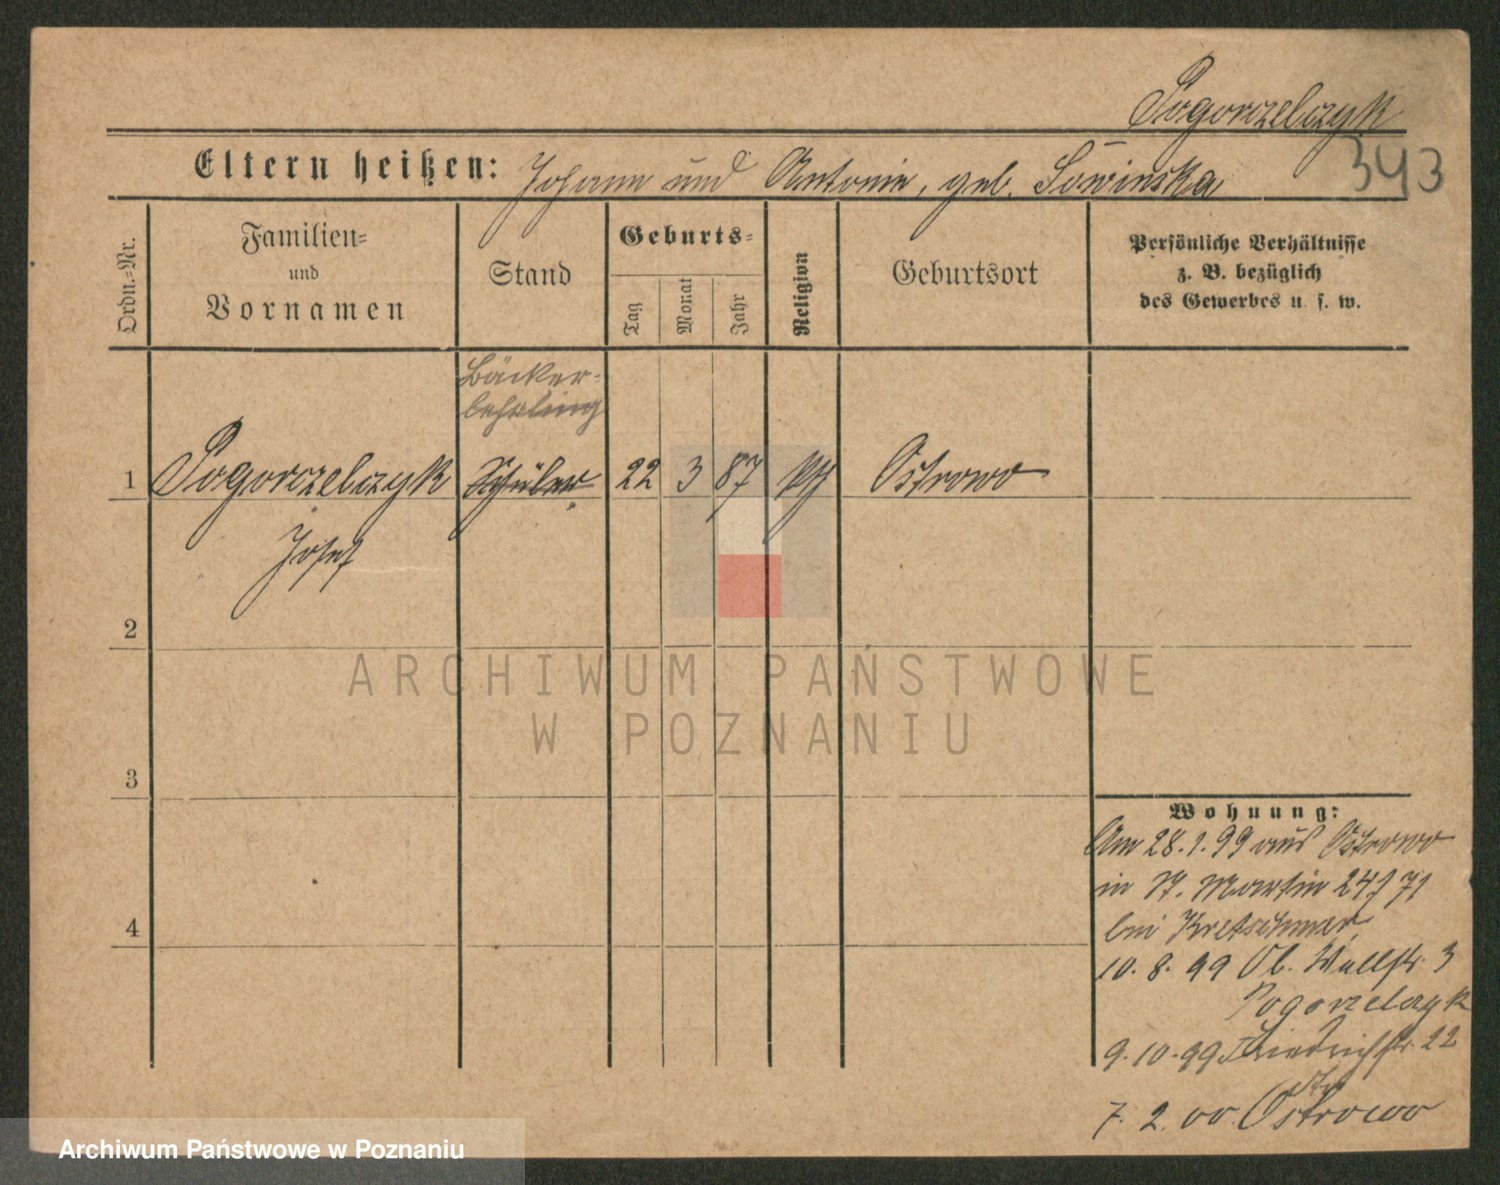 Pogorczelczyk
343
Eltern heißen: Johann und Antonie, geb. Sowinska
Ordn.-Nr.
Familien-
und
Vornamen
Stand
Geburts-
Tag
Monat
Jahr
Religion
Geburtsort
Persönliche Verhältnisse
z. B. bezüglich
des Gewerbes u. s. w.
Bäcker-
lehrling
1 Pogorczelczyk Schüler 22 3 87 Ostrowo
Josef
2
3
4
Wohnung:
Am 28.1.99 aus Ostrowo
in St. Martin 24 71
bei Kretschmer
10.8.99 Ob. Wallstr. 3
Pogorzelczyk
9.10.99 Friedrichstr. 22
7.2.00 Ostrowo
ARCHIWUM PAŃSTWOWE
W POZNANIU
Archiwum Państwowe w Poznaniu